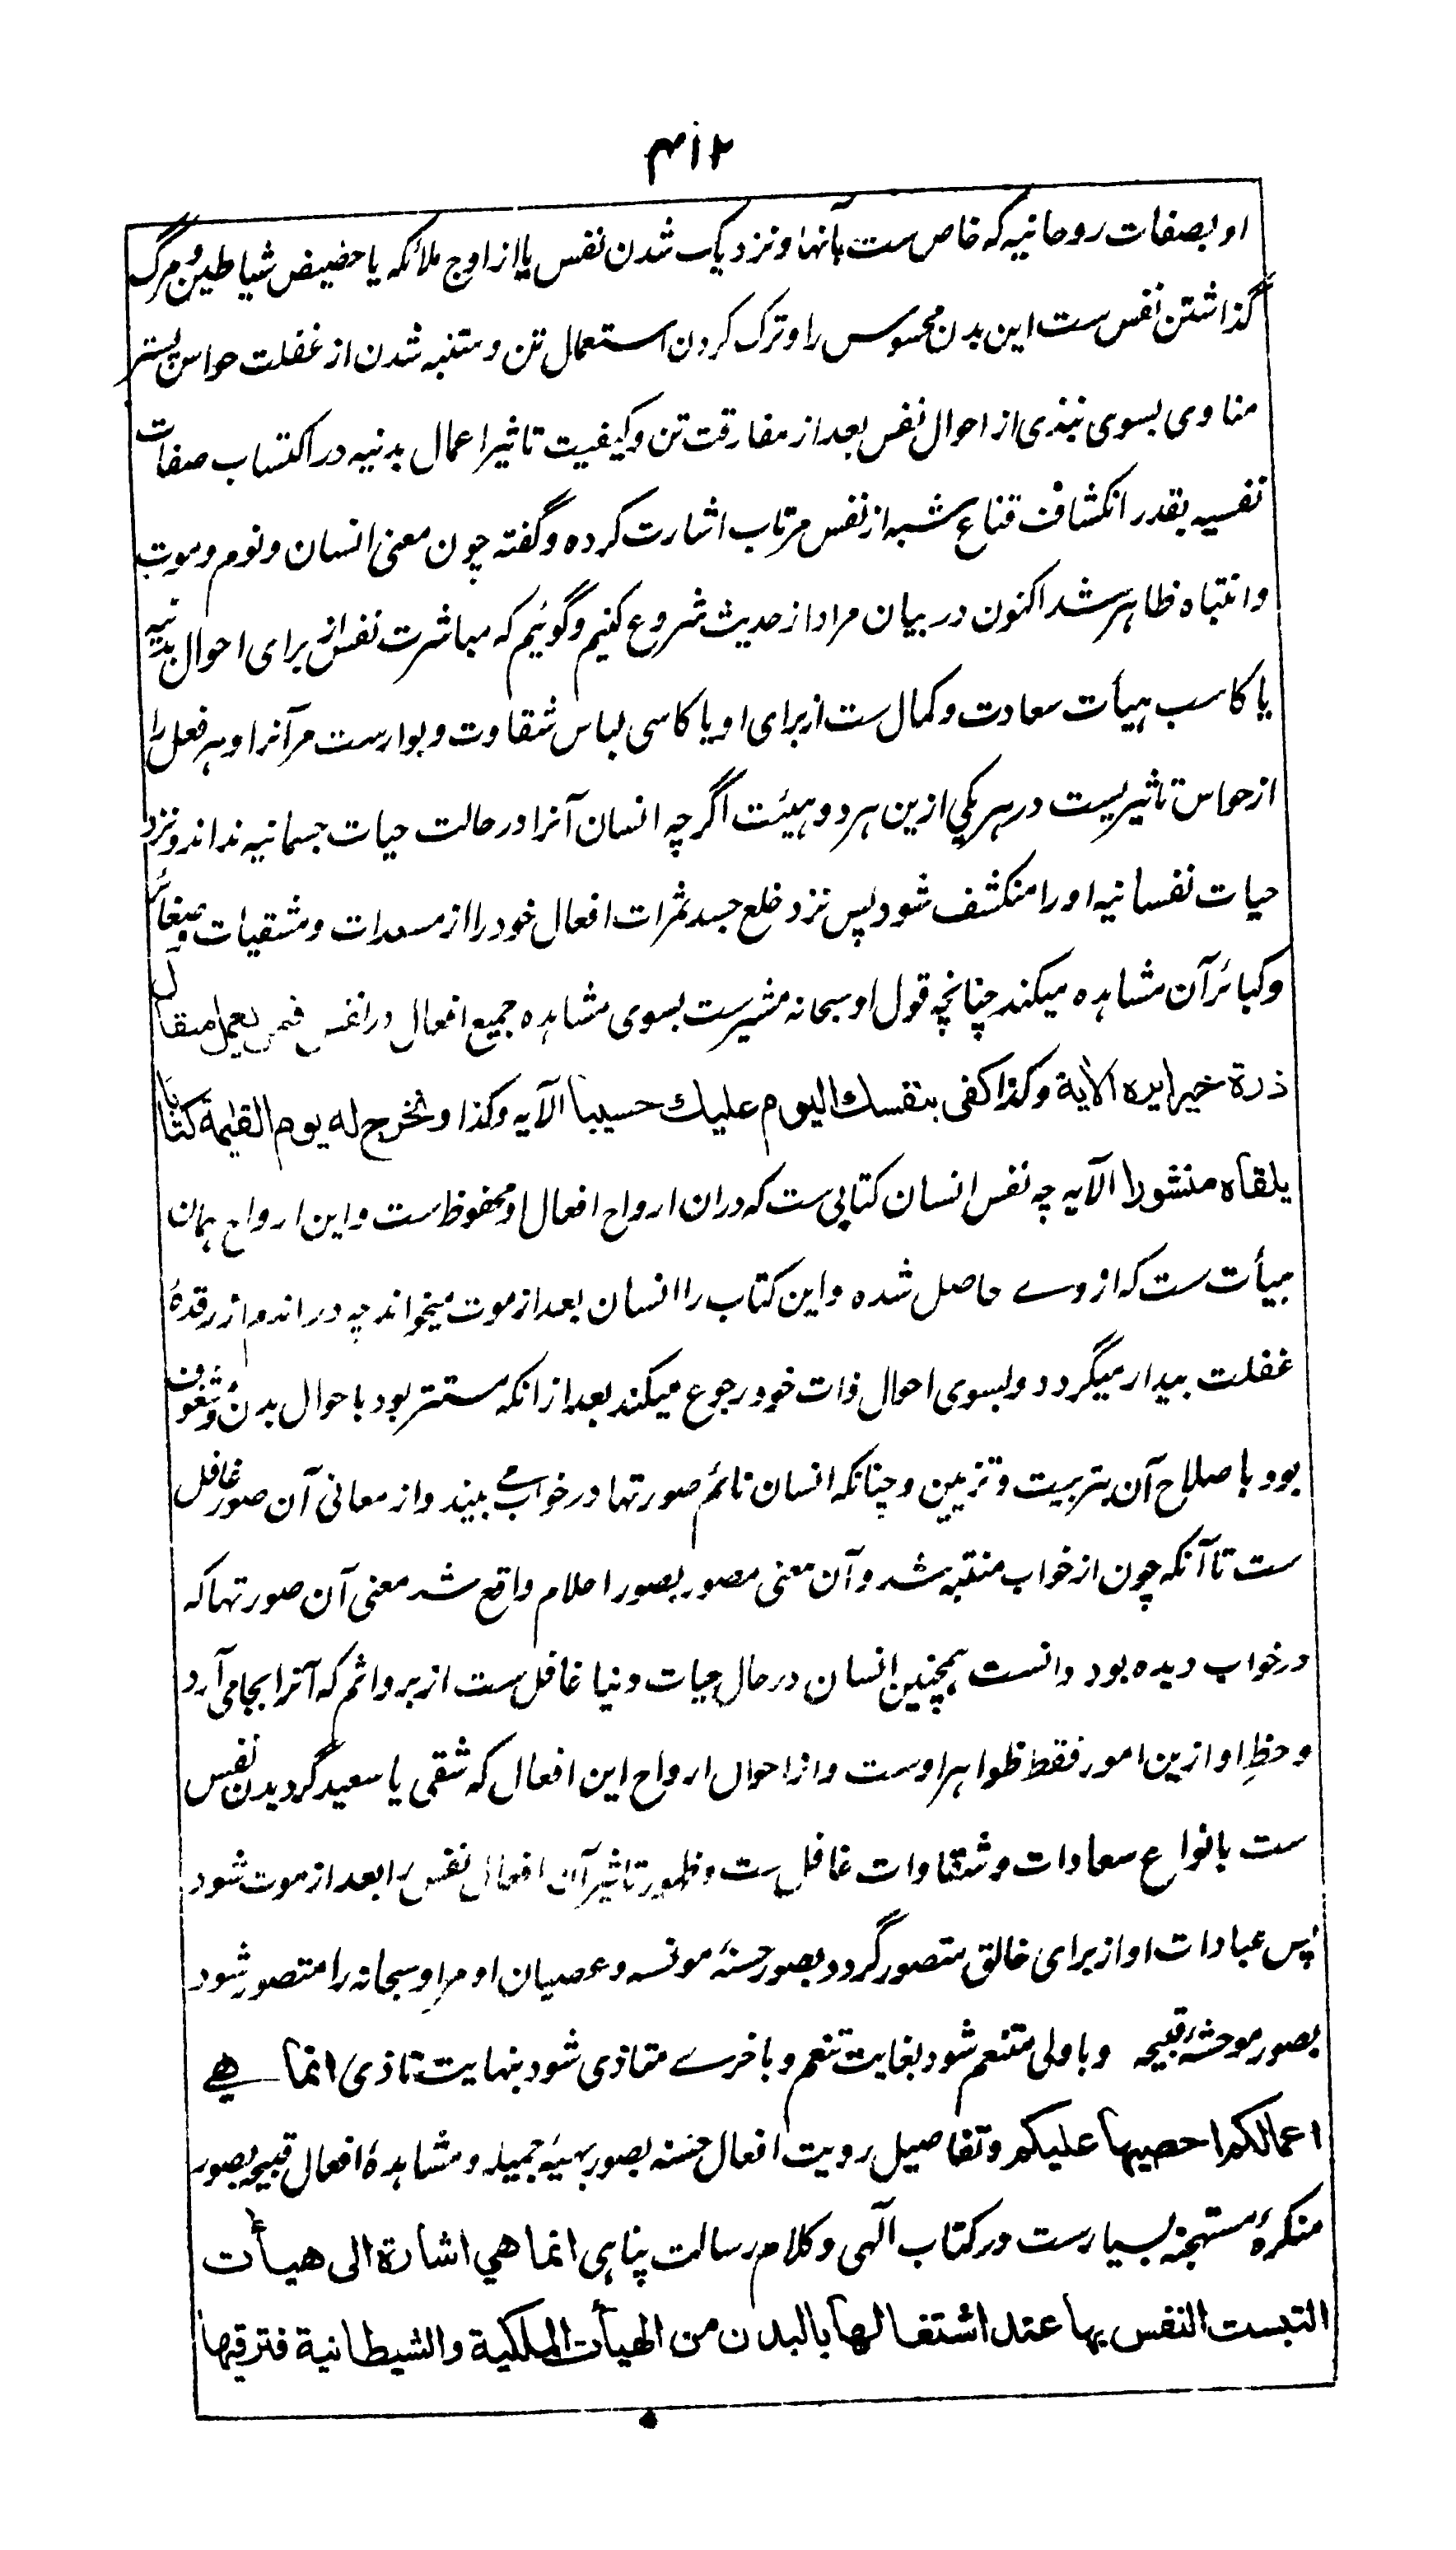 ۴۱۲
او بصفات روحانیه که خاص ست بآنها و نزدیک شدن نفس یا از اوج ملائکه یا حضیض شیاطین و مرگ
گذاشتن نفس ست این بدن محسوس را و ترک کردن استعمال تن و متنبه شدن از غفلت حواس پستر
مناوی بسوی نبذی از احوال نفس بعد از مفارقت تن و کیفیت تاثیر اعمال بدنیه در اکتساب صفات
نفسیه بقدر انکشاف قناع شبه از نفس مرتاب اشارت کرده و گفته چون معنی انسان و نوم و موت
و انتباه ظاهر شد اکنون در بیان مراد از حدیث شروع کنیم و گوئیم که مباشرت نفس از برای احوال بدنیه
یا کاسب هیأت سعادت و کمال ست از برای او یا کاسی لباس شقاوت و بوارست مر آنرا و هر فعل را
از حواس تاثیریست در هر یکی ازین هر دو هیئت اگر چه انسان آنرا در حالت حیات جسمانیه نداند و نزد
حیات نفسانیه او را منکشف شود پس نزد خلع جسد ثمرات افعال خود را از مسعدات و مشقیات و صغائر
و کبائر آن مشاهده میکند چنانچه قول او سبحانه مشیرست بسوی مشاهده جمیع افعال در انفس فمن یعمل مثقال
ذرة خیرا یره الآیة وکذا کفی بنفسك الیوم علیك حسیبا الآیه وکذا ونخرج له یوم القیمة کتابا
یلقاه منشورا الآیه چه نفس انسان کتابی ست که دران ارواح افعال او محفوظ ست و این ارواح همان
هیأت ست که از وے حاصل شده و این کتاب را انسان بعد از موت میخواند چه در اندم از رقدۀ
غفلت بیدار میگردد و بسوی احوال ذات خود رجوع میکند بعد از انکه مستتر بود باحوال بدن و مشغوف
بود باصلاح آن بتربیت و تزیین و چنانکه انسان نائم صورتها در خواب می بیند و از معانی آن صور غافل
ست تا آنکه چون از خواب منتبه شد و آن معنی مصور بصور احلام واقع شد معنی آن صورتها که
در خواب دیده بود دانست همچنین انسان در حال حیات دنیا غافل ست از بر و اثم که آنرا بجا می آرد
و حظِ او ازین امور فقط ظواهر اوست و از احوال ارواح این افعال که شقی یا سعید گردیدن نفس
ست بانواع سعادات و شقاوات غافل ست و ظهور تاثیر آن افعال نفس را بعد از موت شود
پس عبادات او از برای خالق متصور گردد بصور حسنۀ مونسه و عصیان او مر او سبحانه را متصور شود
بصور موحشۀ قبیحه و باولی متنعم شود بغایت تنعم و باخرے متاذی شود بنهایت تاذی انما هی
اعمالکم احصیها علیکم و تفاصیل رویت افعال حسنه بصور بهیۀ جمیله و مشاهدۀ افعال قبیحه بصور
منکرۀ مستهجنه بسیارست در کتاب الٓهی و کلام رسالت پناهی انما هی اشارة الی هیأت
التبست النفس بها عند اشتغالها بالبدن من الهیأت الملکیة والشیطانیة فترقیها